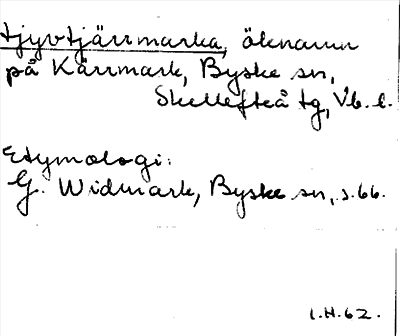 tjyvtjärrmarka, öknamn
på Kärrmark, Byske sn,
Skellefteå tg, Vb. l.
Etymologi:
G. Widmark, Byske sn, s. 66.
I.H.62.